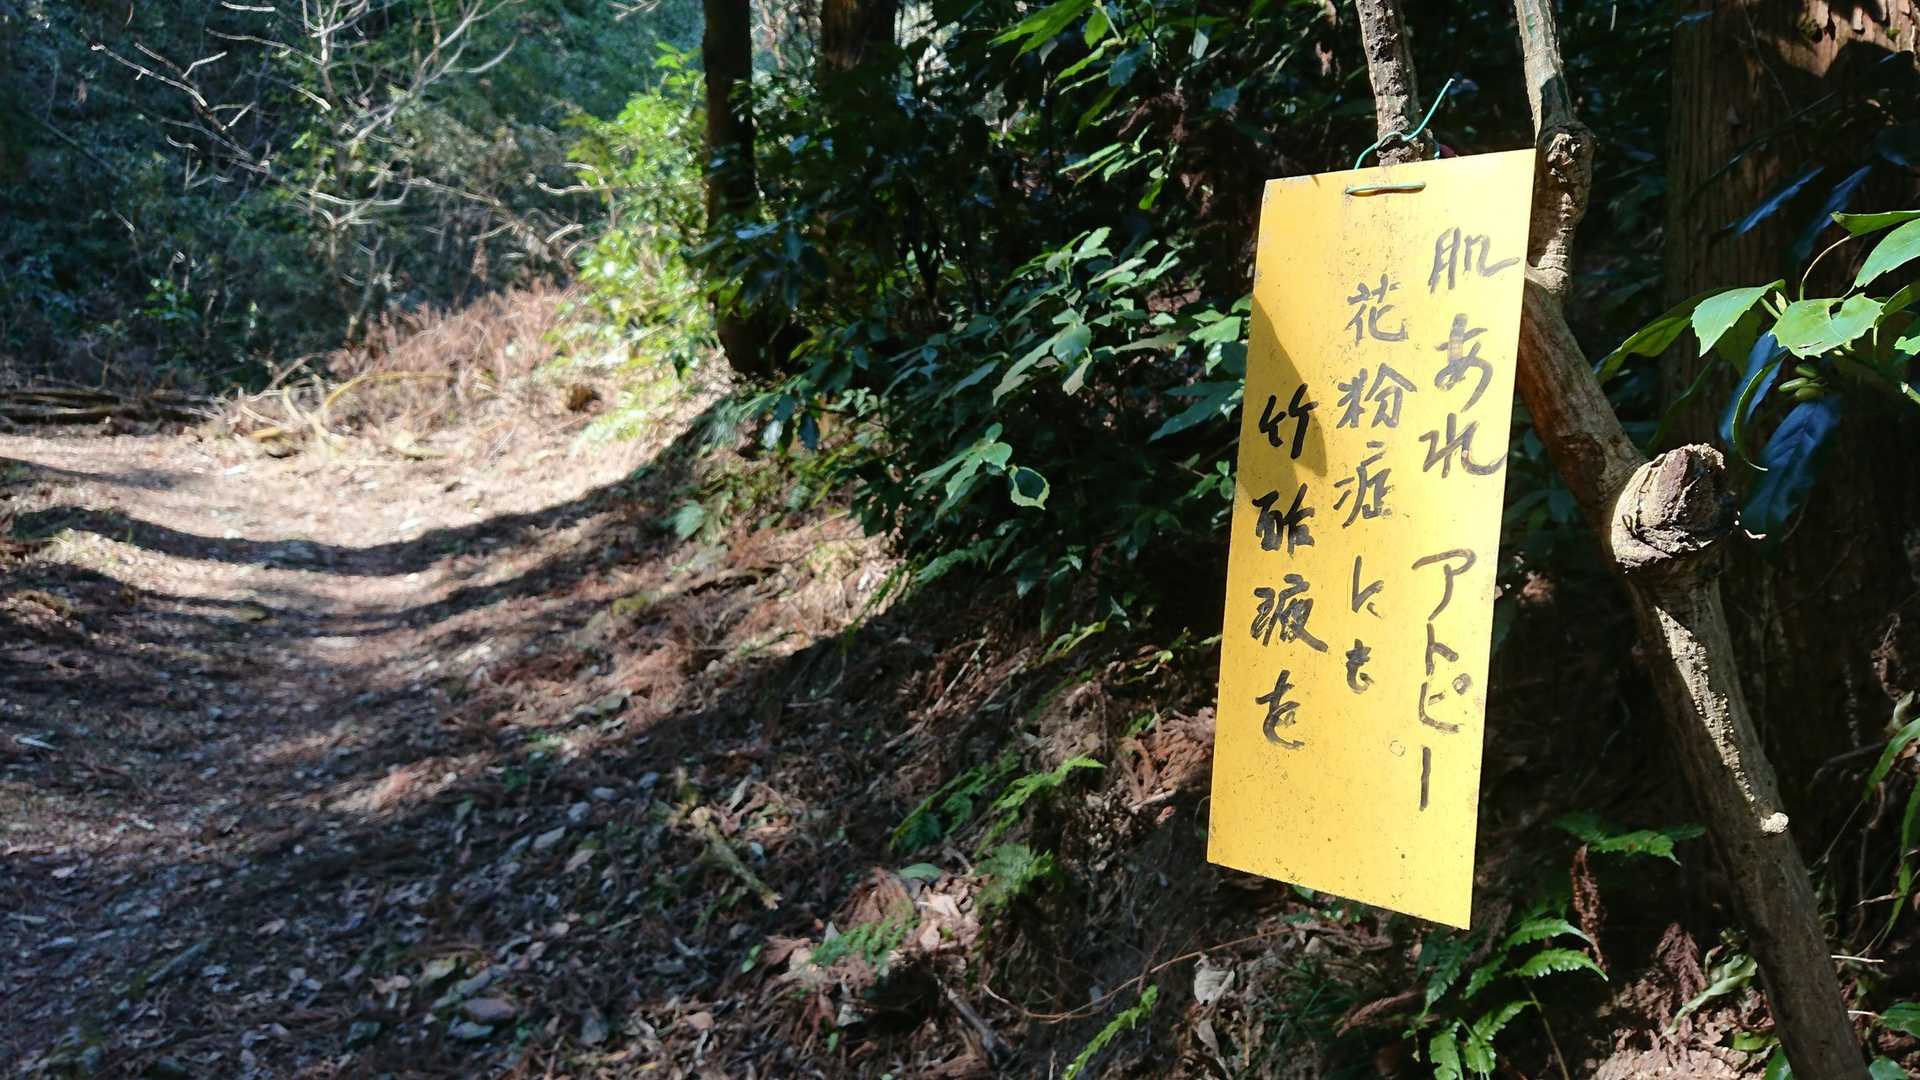 肌あれ アトピー
花粉症にも
竹酢液を